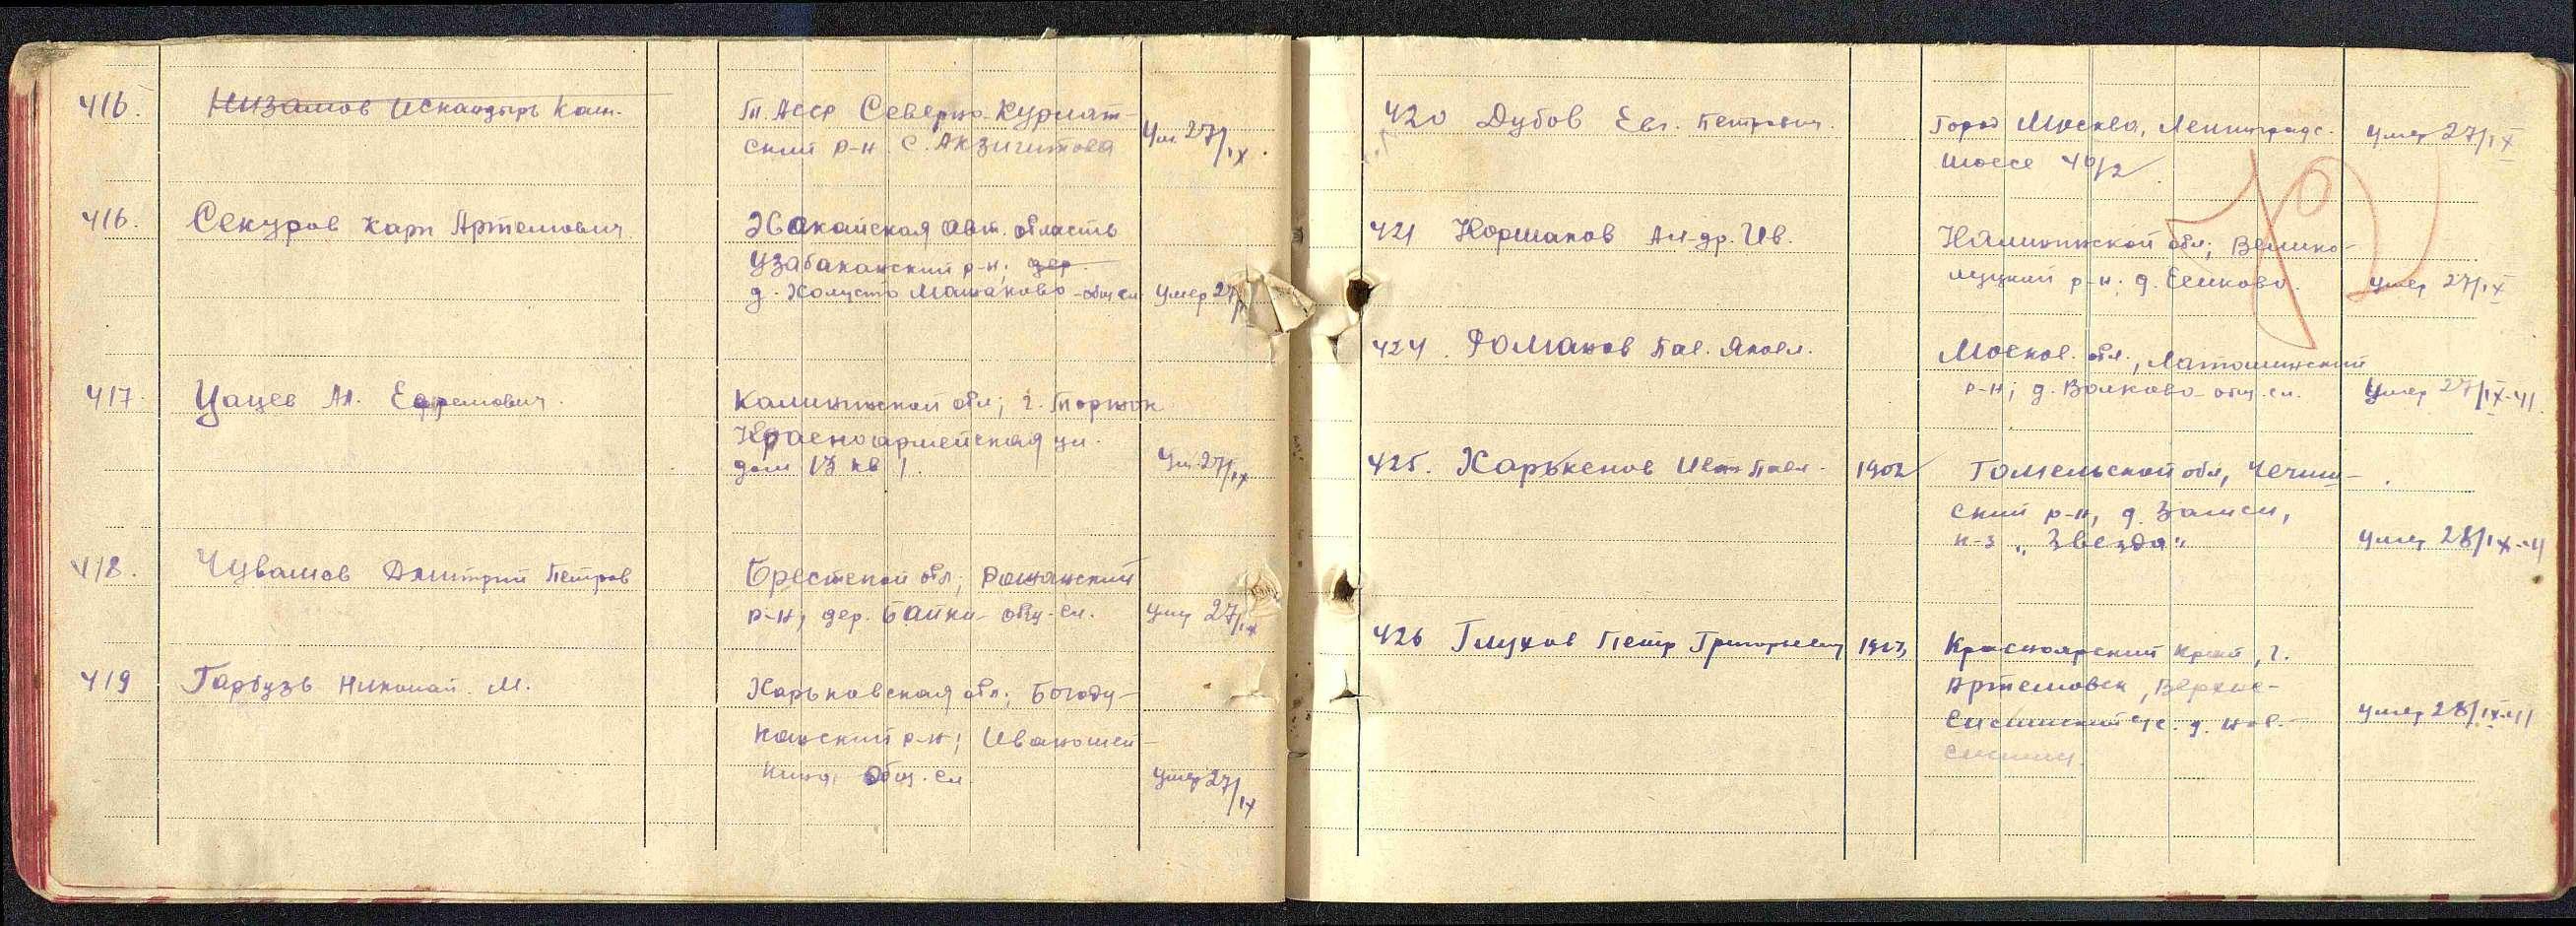 416. Низамов Искандыр Кам.
Т. Асср Северно-Курмат-
ский р-н. с. Акзигитова
Ум 27/IX.
416. Секуров Карп Артемович
Хакайская авт. область
Узабаканский р-н; дер.
д. Машаково - общ сл. Умер 27/IX
417. Уацев Ал. Ефремович.
Калининской обл; г. Торжок
Красноармейская ул.
дом 13 кв 1. Ум 27/IX
418. Чувашов Дмитрий Петров
Брестской обл; Рожанский
р-н, дер. Байки - общ. сл. Умер 27/IX
419 Гарбузь Николай. М.
Харьковская обл; Богоду-
ханский р-н; Иваношей-
кино, Общ. сл. Умер 27/IX
420 Дубов Евг. Петрович.
Город Москва, Ленинградс.
шоссе 40/2. Умер 27/IX
421 Коршаков Ал-др. Ив.
Калининской обл; Велико-
луцкий р-н; д. Еемково. Умер 27/IX
424. Романов Пав. Яковл.
Москов. обл., Латошинский
р-н; д. Волково - общ. сл. Умер 27/IX-41.
425. Харькенов Иван Павл. 1902
Гомельской обл, Чечин-
ский р-н, д. Залеси,
к-з "Звезда" Умер 28/IX-41
426 Глухов Петр Григорьевич 1903
Красноярский край, г.
Артемовск, Верхне-
с/с. д. Н-
Умер 28/IX-41